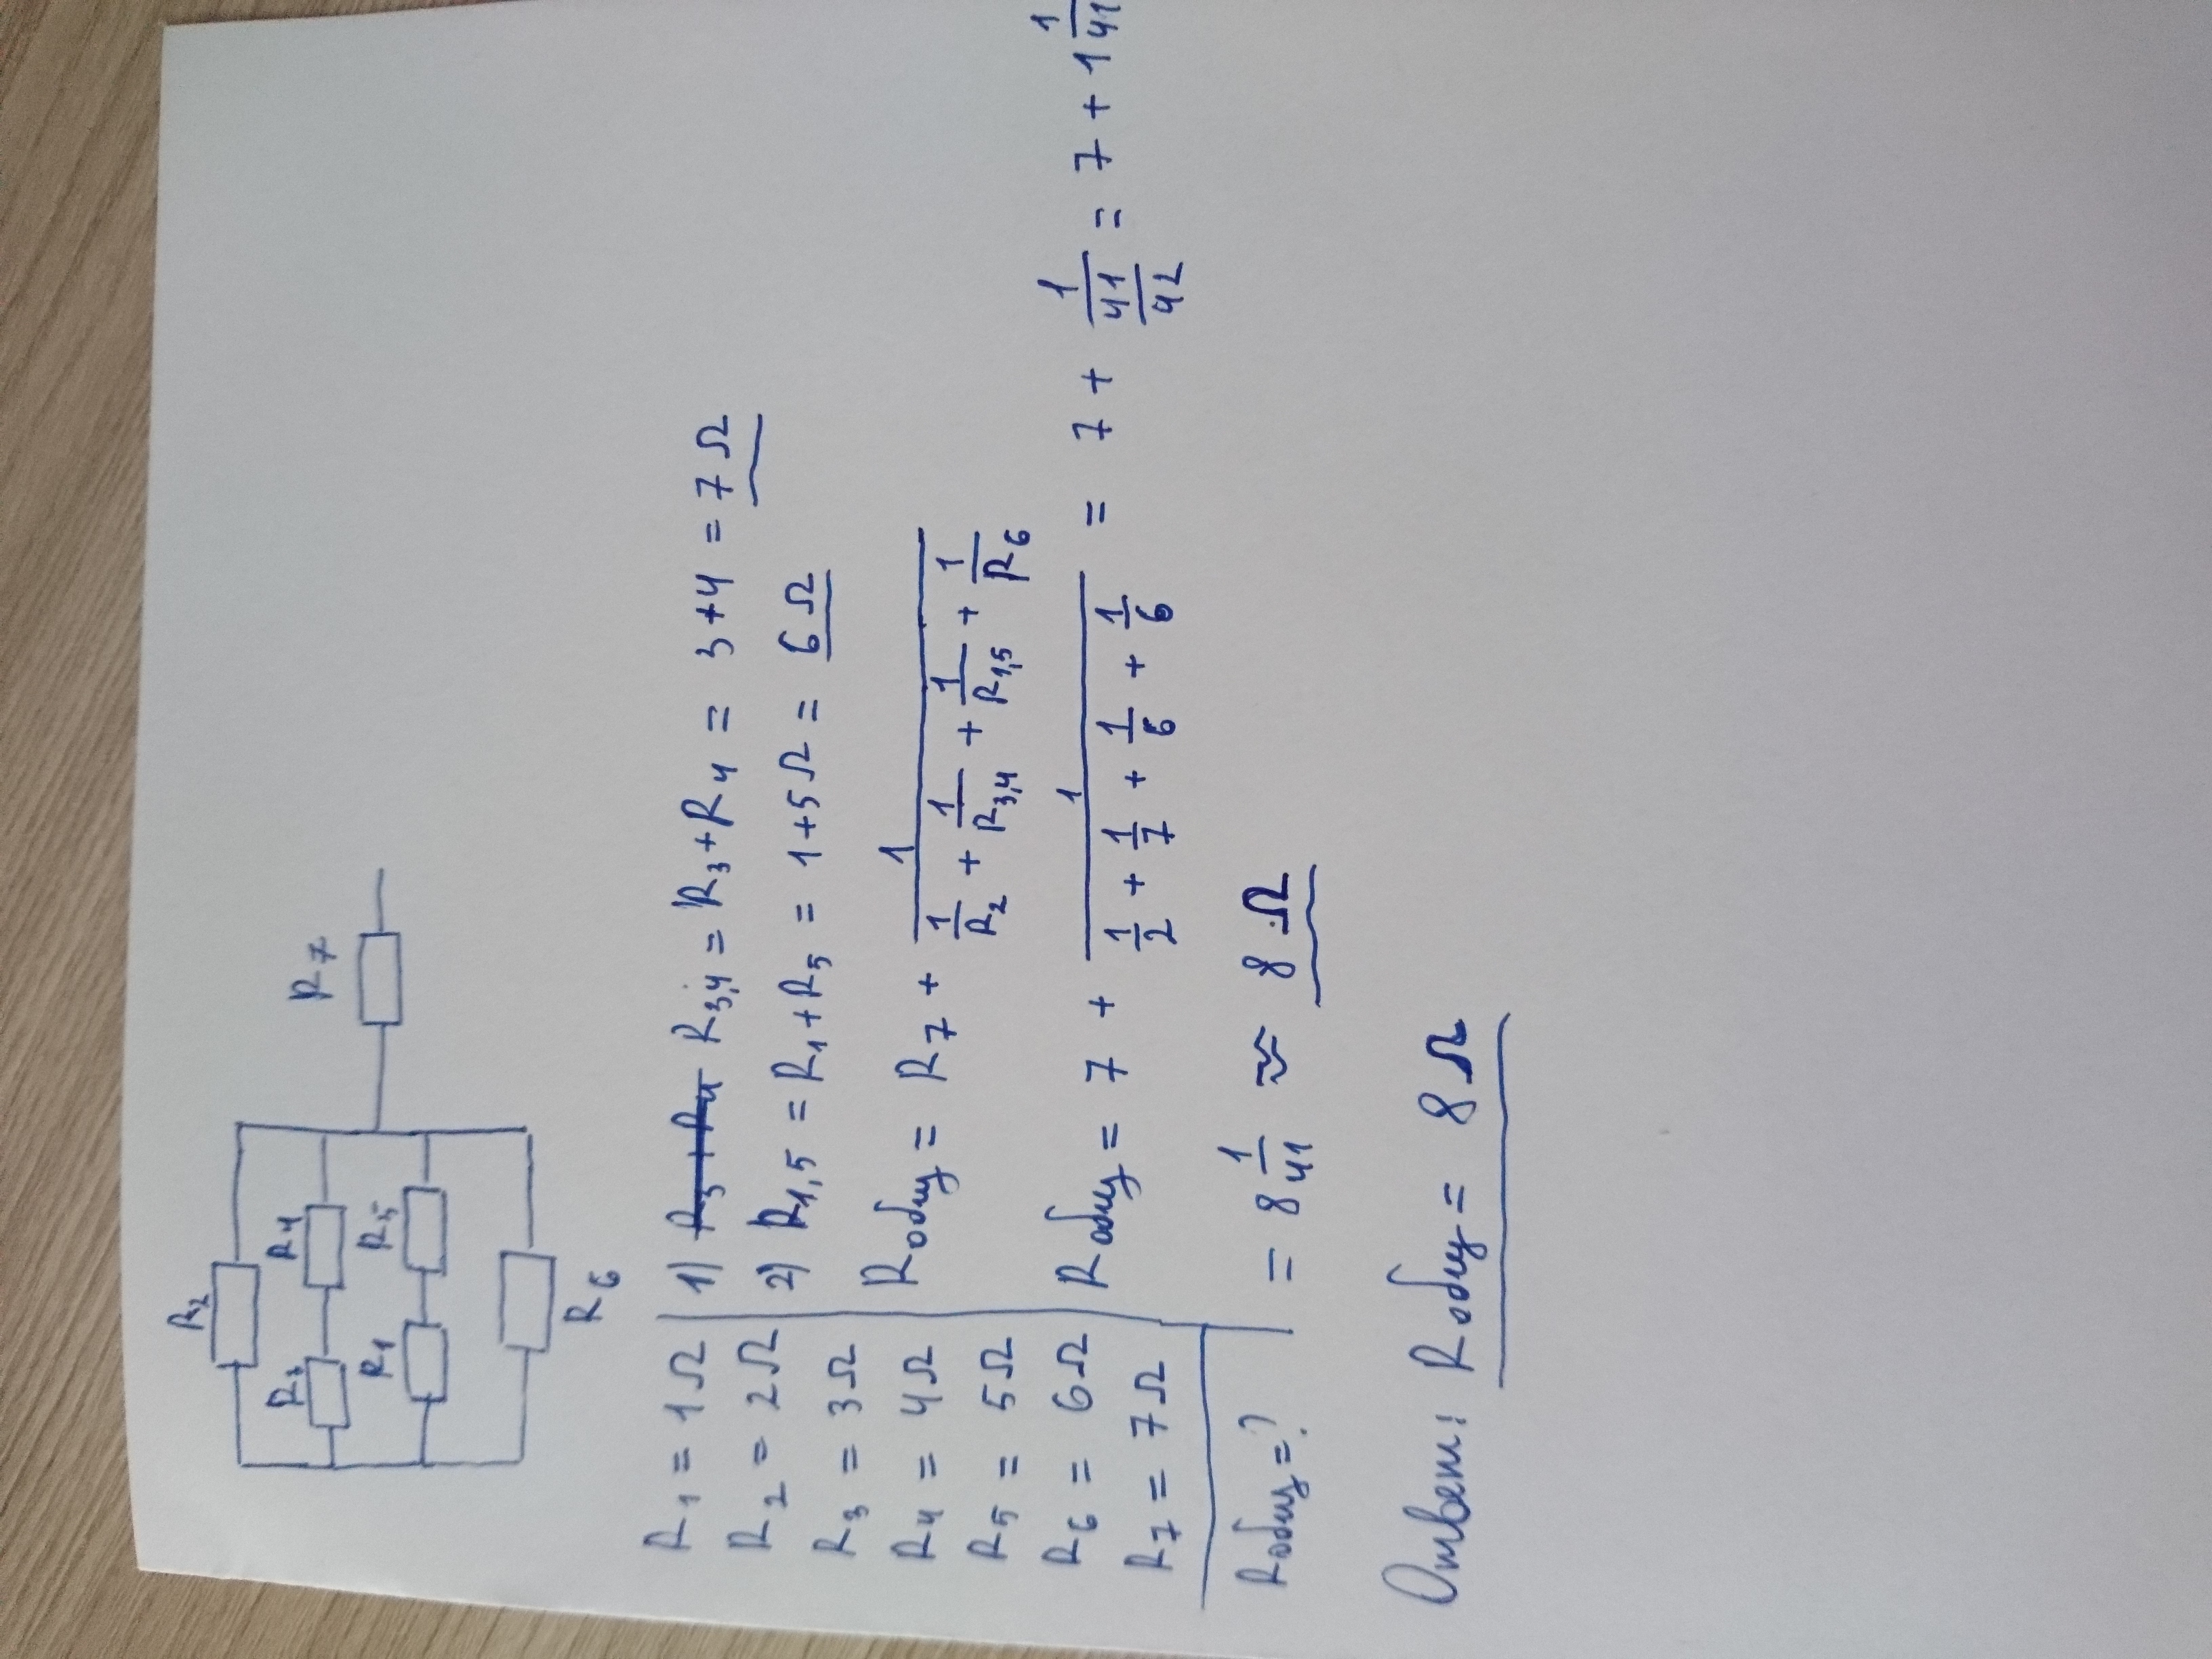 R2
R3 R4
R7
R1 R5
R6
R1 = 1Ω
R2 = 2Ω
R3 = 3Ω
R4 = 4Ω
R5 = 5Ω
R6 = 6Ω
R7 = 7Ω
Rобщ=?
1) R3,4 = R3+R4 = 3+4 = 7Ω
2) R1,5 = R1+R5 = 1+5Ω = 6Ω
Rобщ = R7 + 1/(1/R2 + 1/R3,4 + 1/R1,5 + 1/R6)
Rобщ = 7 + 1/(1/2 + 1/7 + 1/6 + 1/6) = 7 + 1/(41/42) = 7 + 1 1/41
= 8 1/41 ≈ 8Ω
Ответ: Rобщ = 8Ω